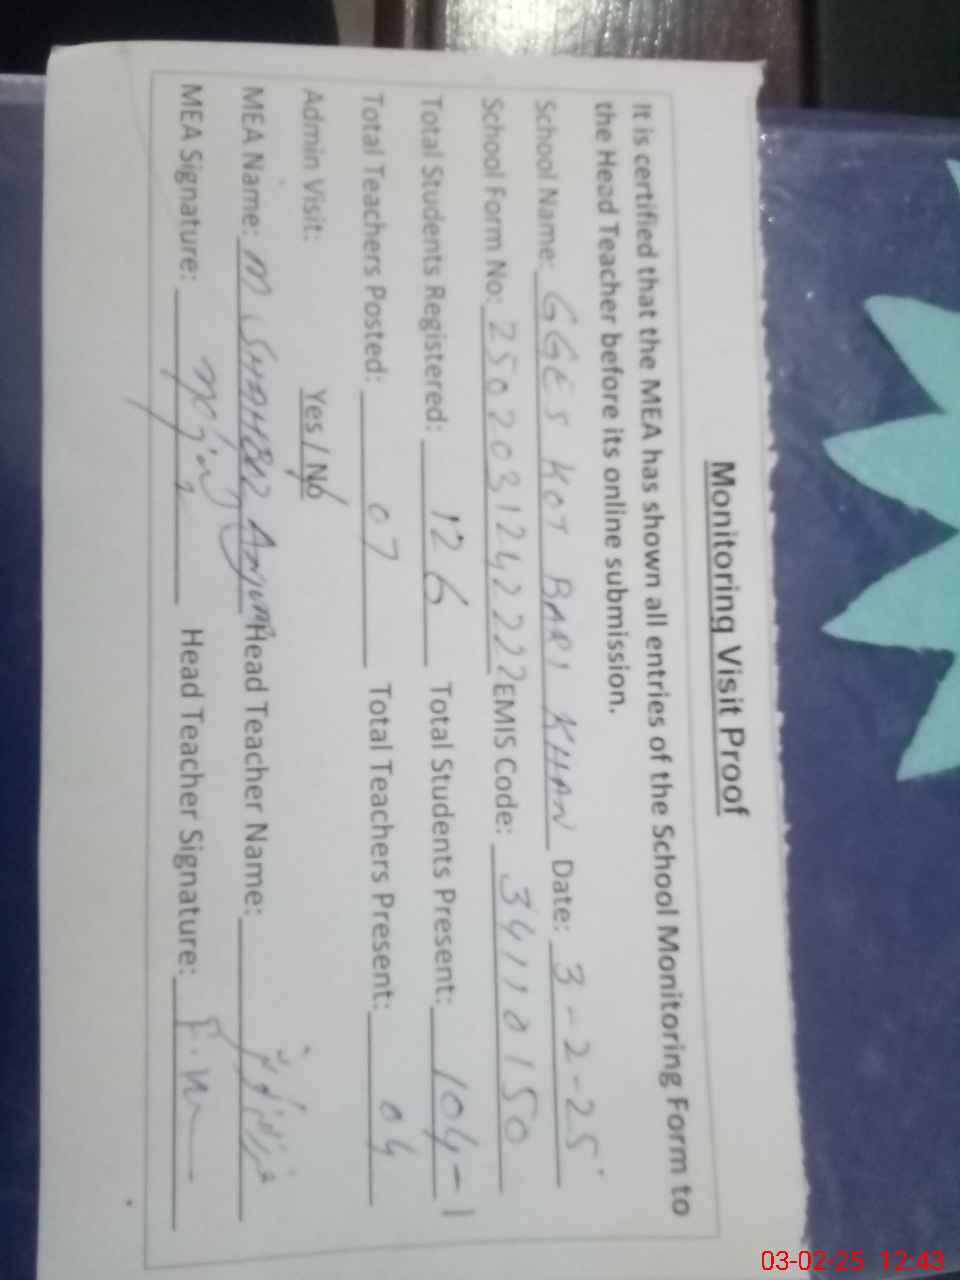 Monitoring Visit Proof
It is certified that the MEA has shown all entries of the School Monitoring Form to
the Head Teacher before its online submission.
School Name: GGES KOT BARI KHAN Date: 3-2-25
School Form No: 2502031242222 EMIS Code: 34110150
Total Students Registered: 126 Total Students Present: 104-1
Total Teachers Posted: 07 Total Teachers Present: 04
Admin Visit: Yes / No
MEA Name: M SHAHBAZ Anjum Head Teacher Name:
MEA Signature: Head Teacher Signature:
03-02-25 12:43